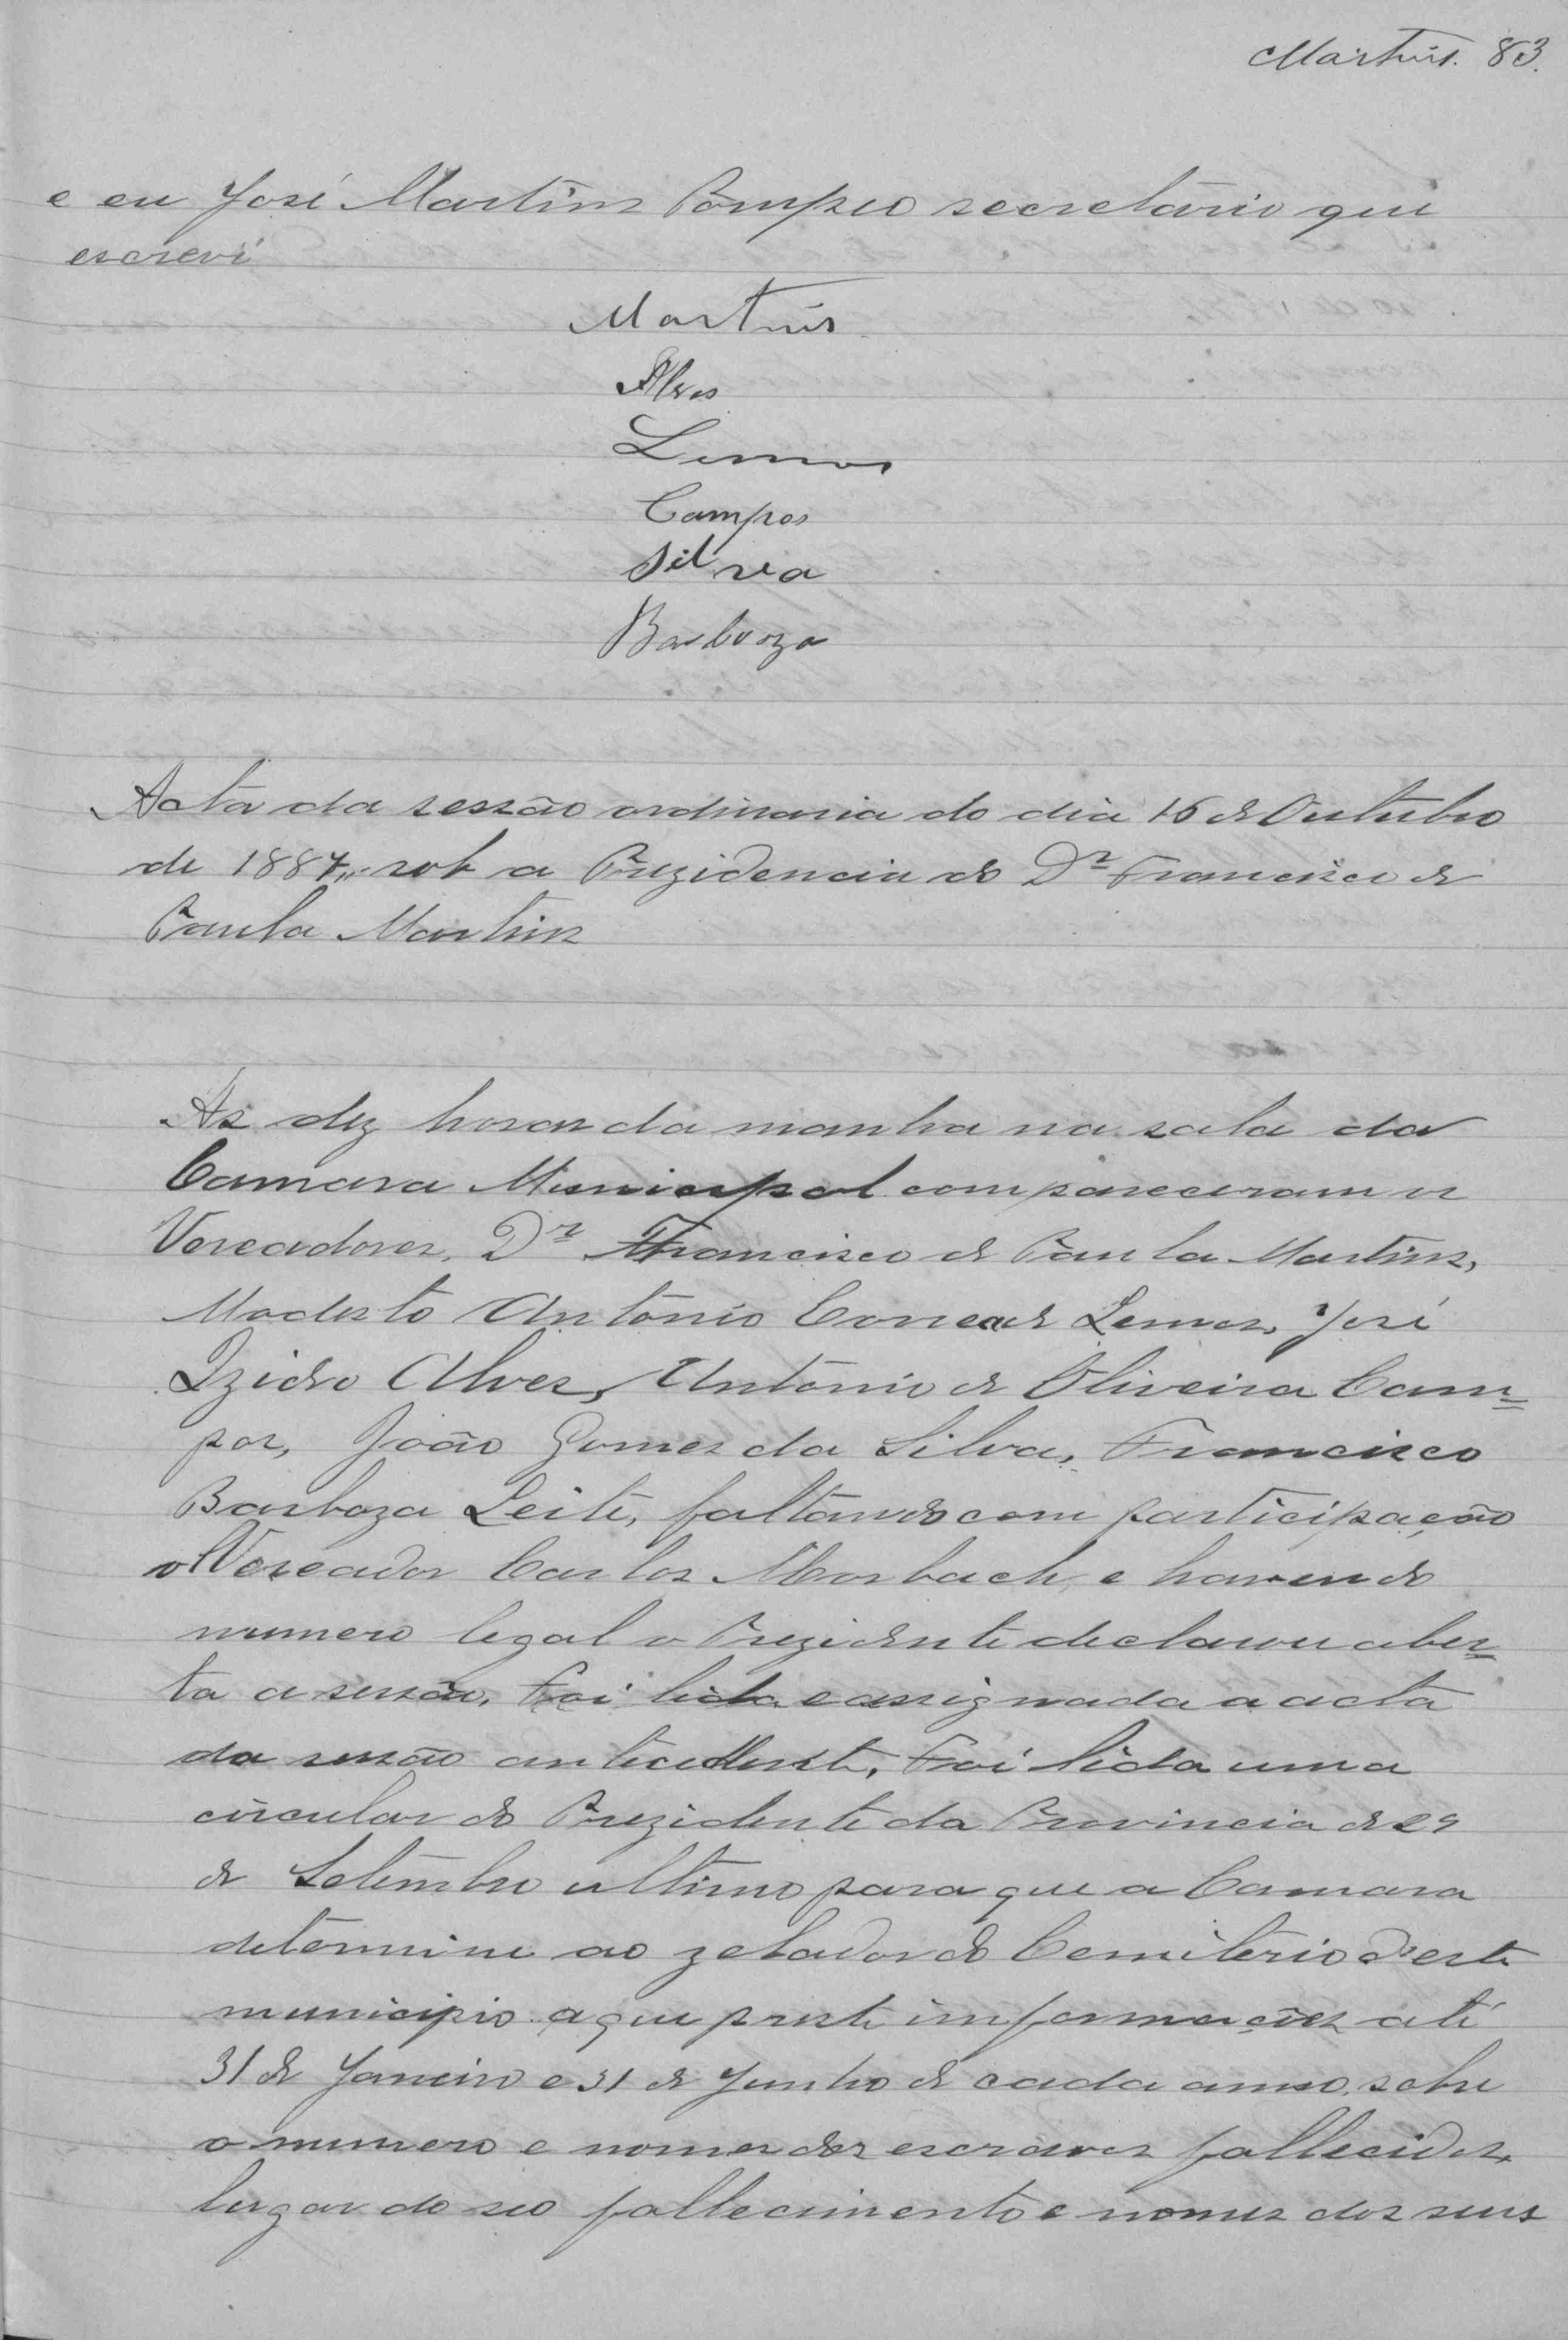 Martins. 83.
e eu José Martins Pompeo secretario que
escrevi
Martins
Alves
Lemos
Campos
Silva
Barboza
Acta da sessão ordinaria do dia 15 de Outubro
de 1887, sob a Prezidencia do Dr Francisco de
Paula Martins
As dez horas da manha na sala da
Camara Municipal compareceram os
Vereadores, Dr Francisco de Paula Martins,
Modesto Antonio Correa de Lemos, José
Izidro Alves, Antonio de Oliveira Cam=
pos, João Gomes da Silva, Francisco
Barboza Leite, faltando com participação
o Vereador Carlos Morbach, e havendo
numero legal o Prezidente declarou aber=
ta a sessão. Foi lida e assignada a acta
da sessão antecedente, Foi lida uma
circular do Prezidente da Provincia de 29
de Setembro ultimo para que a Camara
determine ao zelador do Cemiterio d'este
municipio a que preste informações até
31 de Janeiro e 31 de Junho de cada anno, sobre
o numero e nomes dos escravos fallecidos,
lugar do seo fallecimento e nomes dos seus